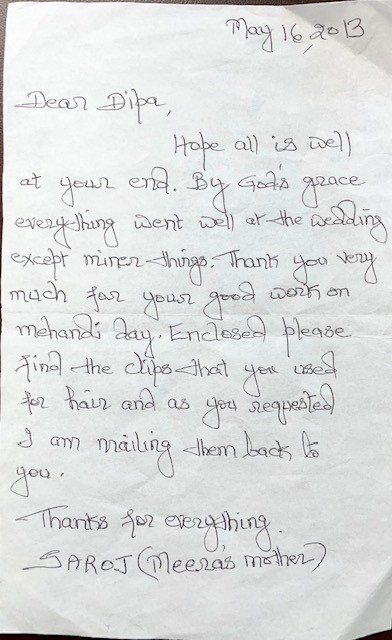 May 16, 2013
Dear Dipa,
Hope all is well
at your end. By God's grace
everything went well at the wedding
except miner things. Thank you very
much for your good work on
mehandi day. Enclosed please
find the clips that you used
for hair and as you requested
I am mailing them back to
you.
Thanks for everything.
SAROJ (Meera's mother)